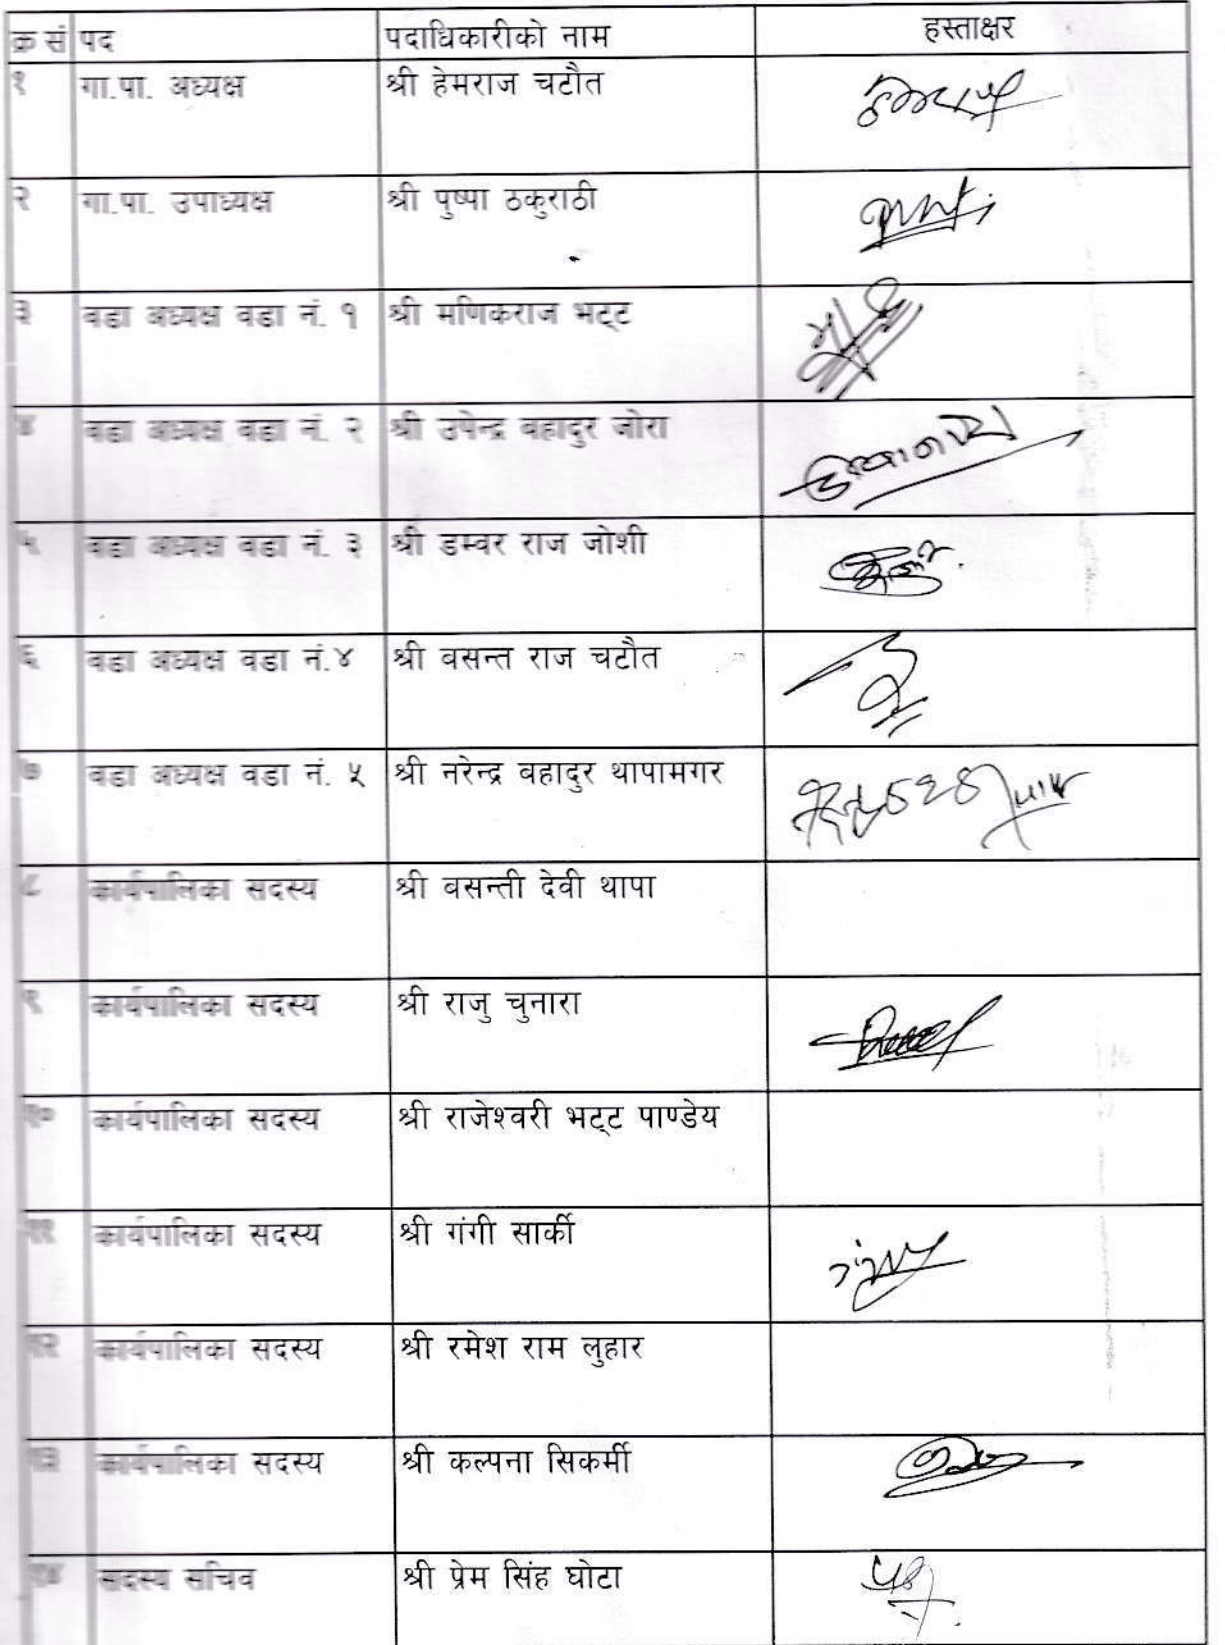 क्र सं पद पदाधिकारीको नाम हस्ताक्षर
१ गा.पा. अध्यक्ष श्री हेमराज चटौत
२ गा.पा. उपाध्यक्ष श्री पुष्पा ठकुराठी
३ वडा अध्यक्ष वडा नं. १ श्री मणिकराज भट्ट
४ वडा अध्यक्ष वडा नं. २ श्री उपेन्द्र बहादुर जोरा
५ वडा अध्यक्ष वडा नं. ३ श्री डम्वर राज जोशी
६ वडा अध्यक्ष वडा नं.४ श्री वसन्त राज चटौत
७ वडा अध्यक्ष वडा नं. ५ श्री नरेन्द्र बहादुर थापामगर
८ कार्यपालिका सदस्य श्री वसन्ती देवी थापा
९ कार्यपालिका सदस्य श्री राजु चुनारा
१० कार्यपालिका सदस्य श्री राजेश्वरी भट्ट पाण्डेय
११ कार्यपालिका सदस्य श्री गंगी सार्की
१२ कार्यपालिका सदस्य श्री रमेश राम लुहार
१३ कार्यपालिका सदस्य श्री कल्पना सिकर्मी
१४ सदस्य सचिव श्री प्रेम सिंह घोटा